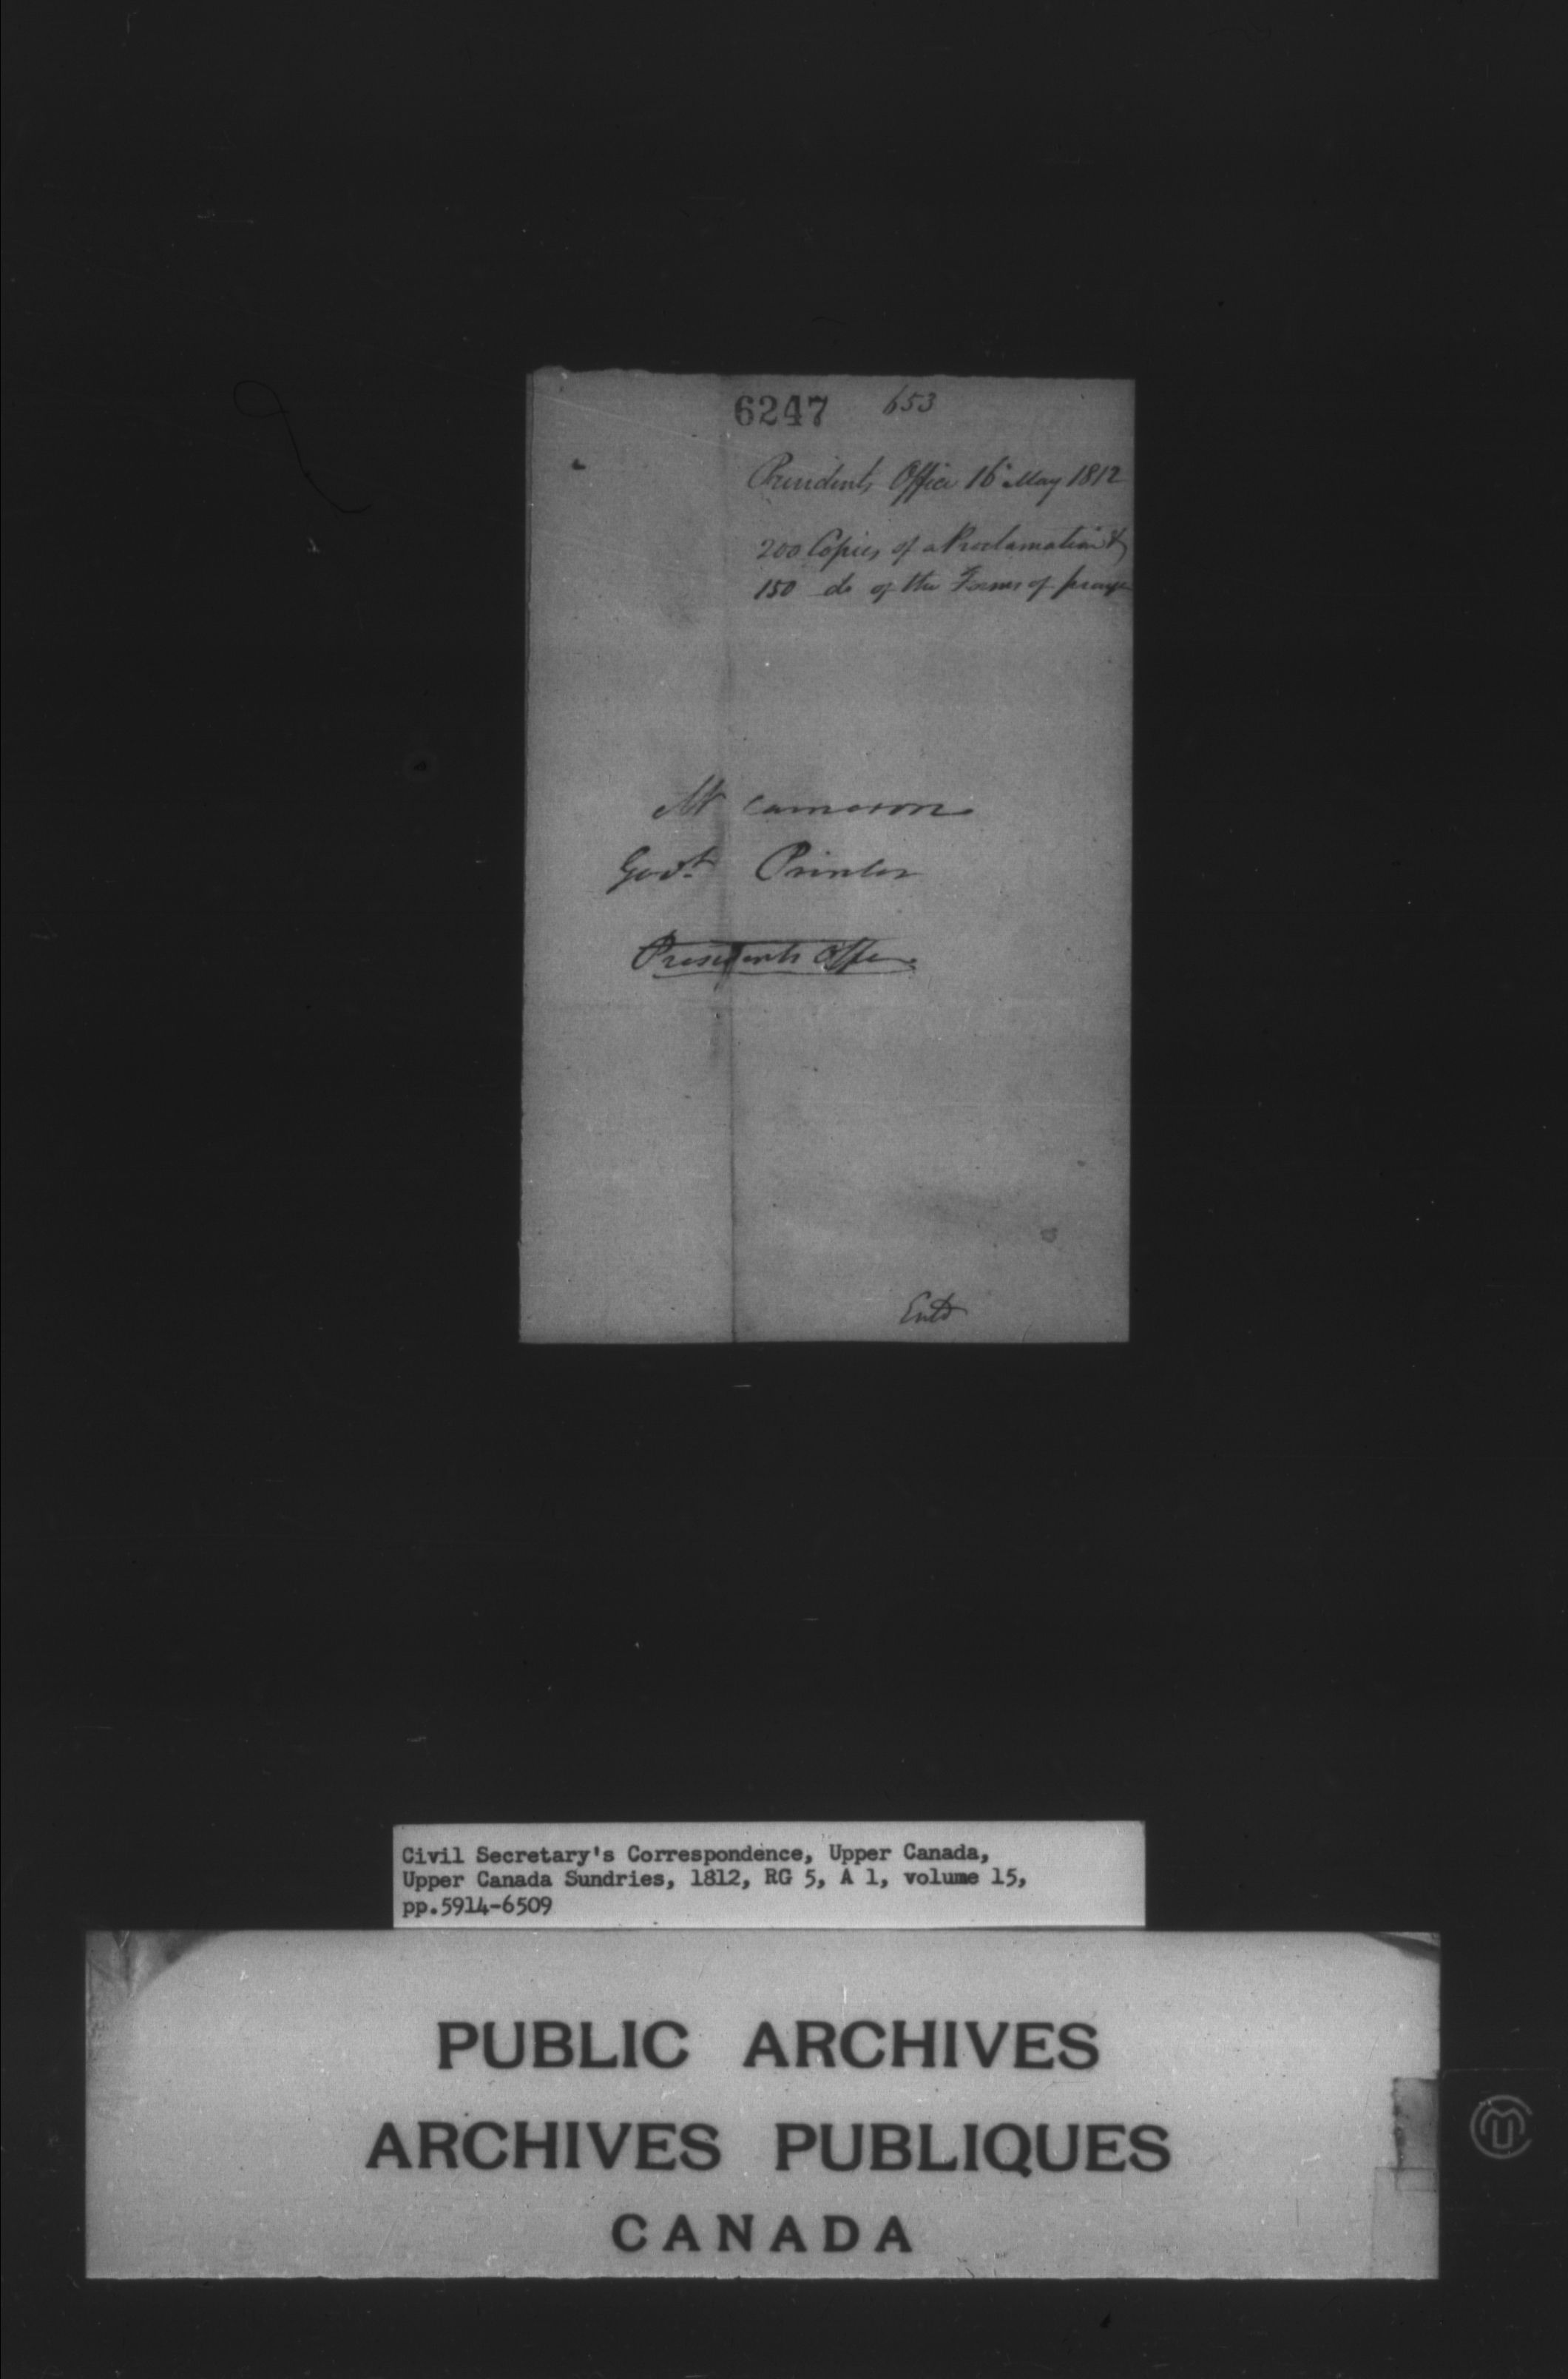 6247 653
Presidents Office 16 May 1812
200 Copies of a Proclamation &
150 do of the Forms of praye
Mr Cameron
Govt. Printer
Presidents Office
Entd
Civil Secretary's Correspondence, Upper Canada,
Upper Canada Sundries, 1812, RG 5, A 1, volume 15,
pp.5914-6509
PUBLIC ARCHIVES
ARCHIVES PUBLIQUES
CANADA